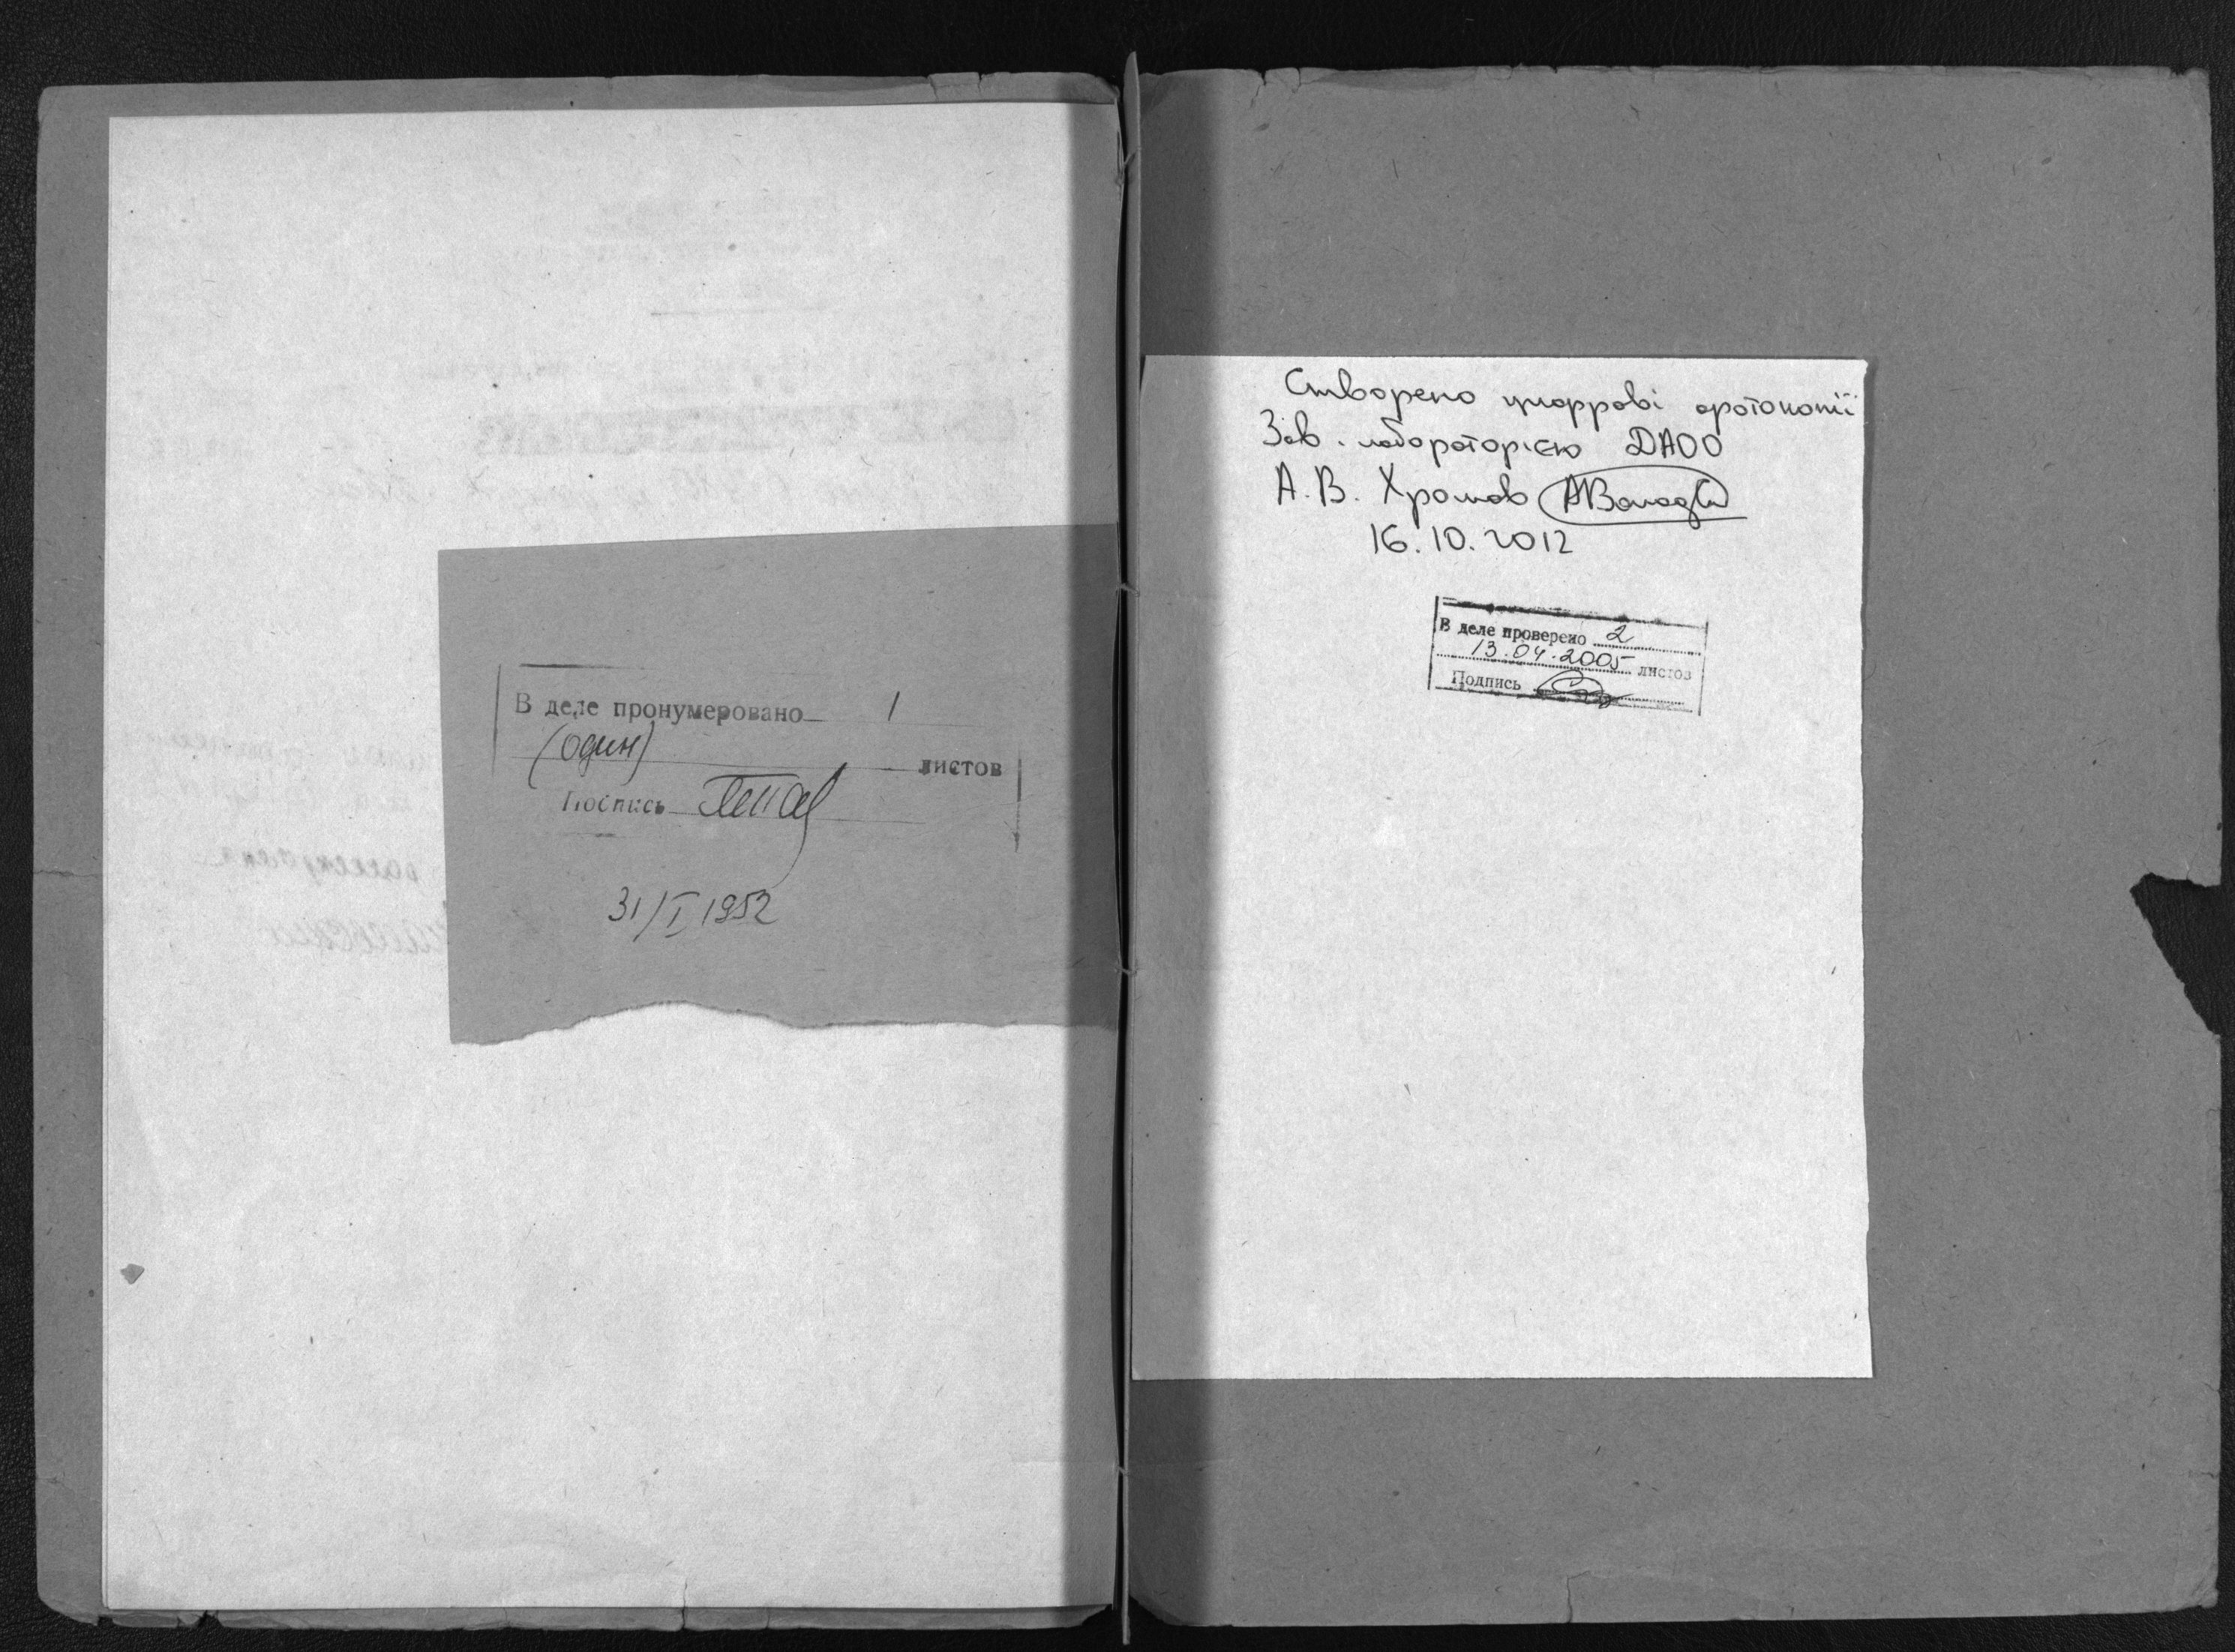 В деле пронумеровано 1
(один)
листов
Подпись
31/I 1952
Створено цифрові фотокопії
Зав. лабораторією ДАОО
А. В. Хромов
16.10.2012
В деле проверено 2
13.04.2005 листов
Подпись